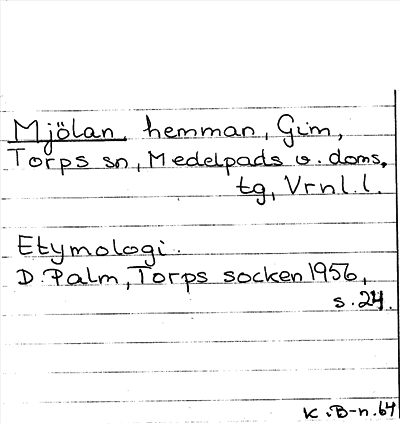 Mjölan hemman, Gim,
Torps sn, Medelpads v. doms.
tg, Vrnl.l.
Etymologi.
D. Palm, Torps socken 1956,
s. 24.
K.B-n. 64